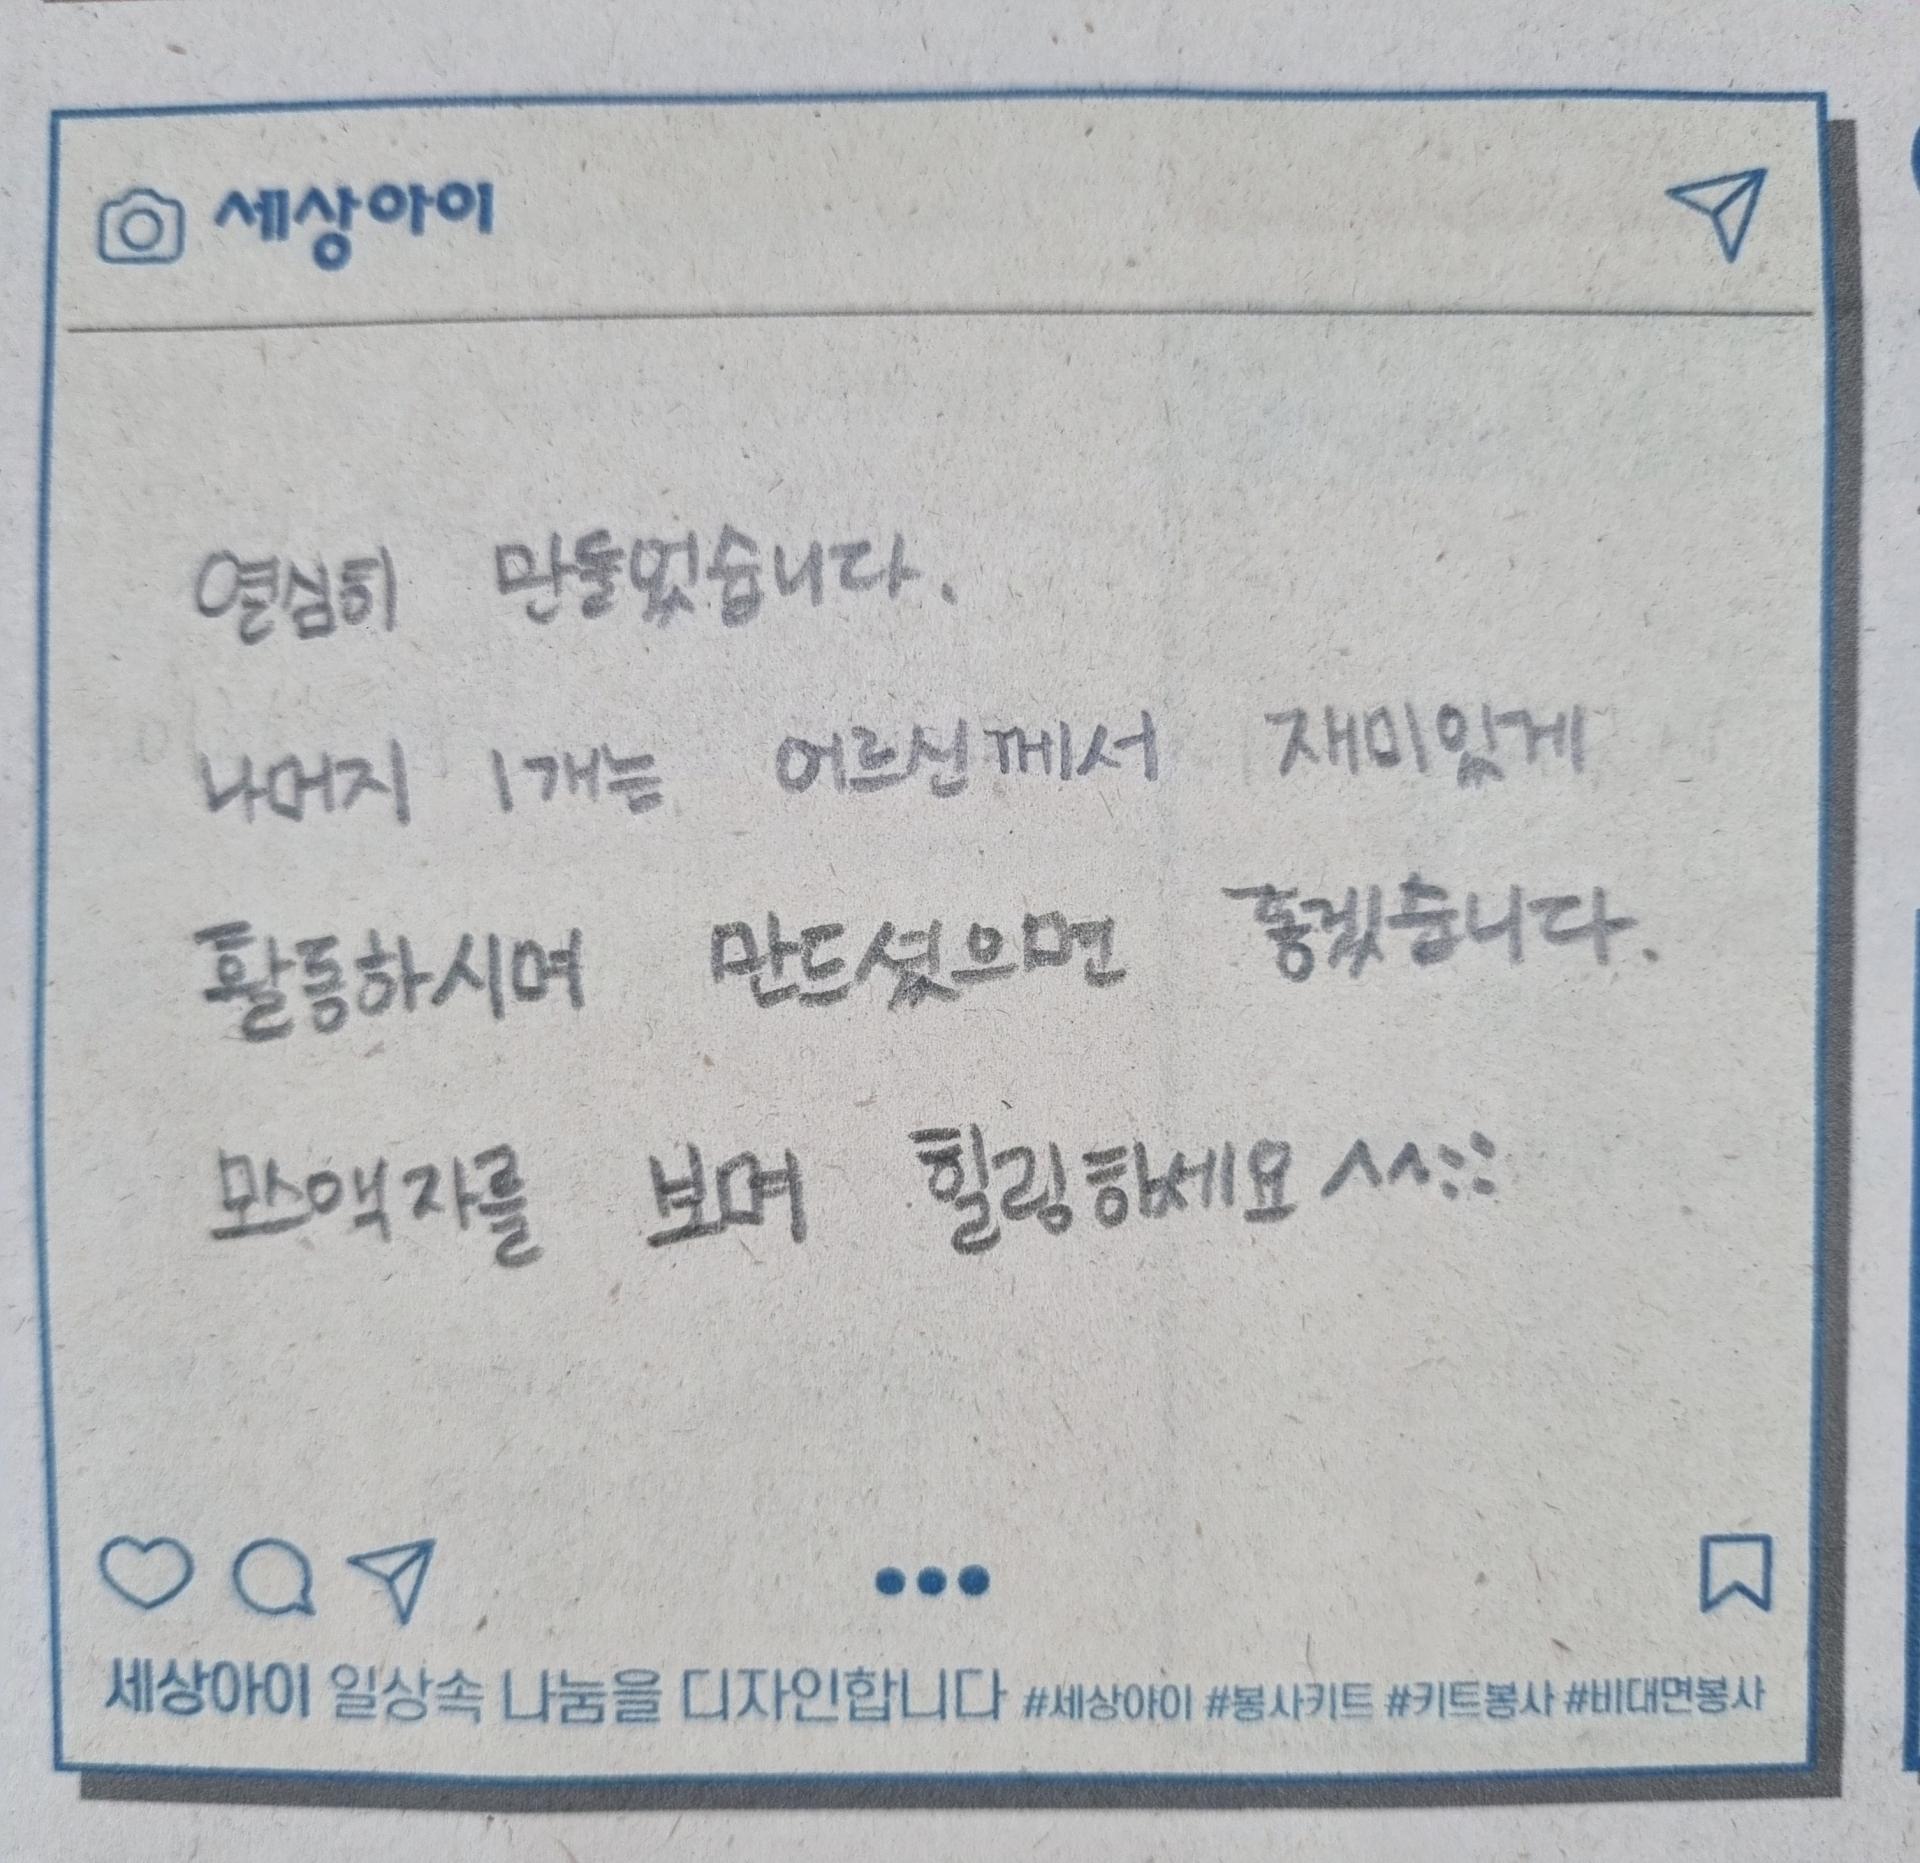 세상아이
열심히 만들었습니다.
나머지 1개는 어르신께서 재미있게
활동하시며 만드셨으면 좋겠습니다.
모스액자를 보며 힐링하세요 ^^::
세상아이 일상속 나눔을 디자인합니다 #세상아이 #봉사키트 #키트봉사 #비대면봉사